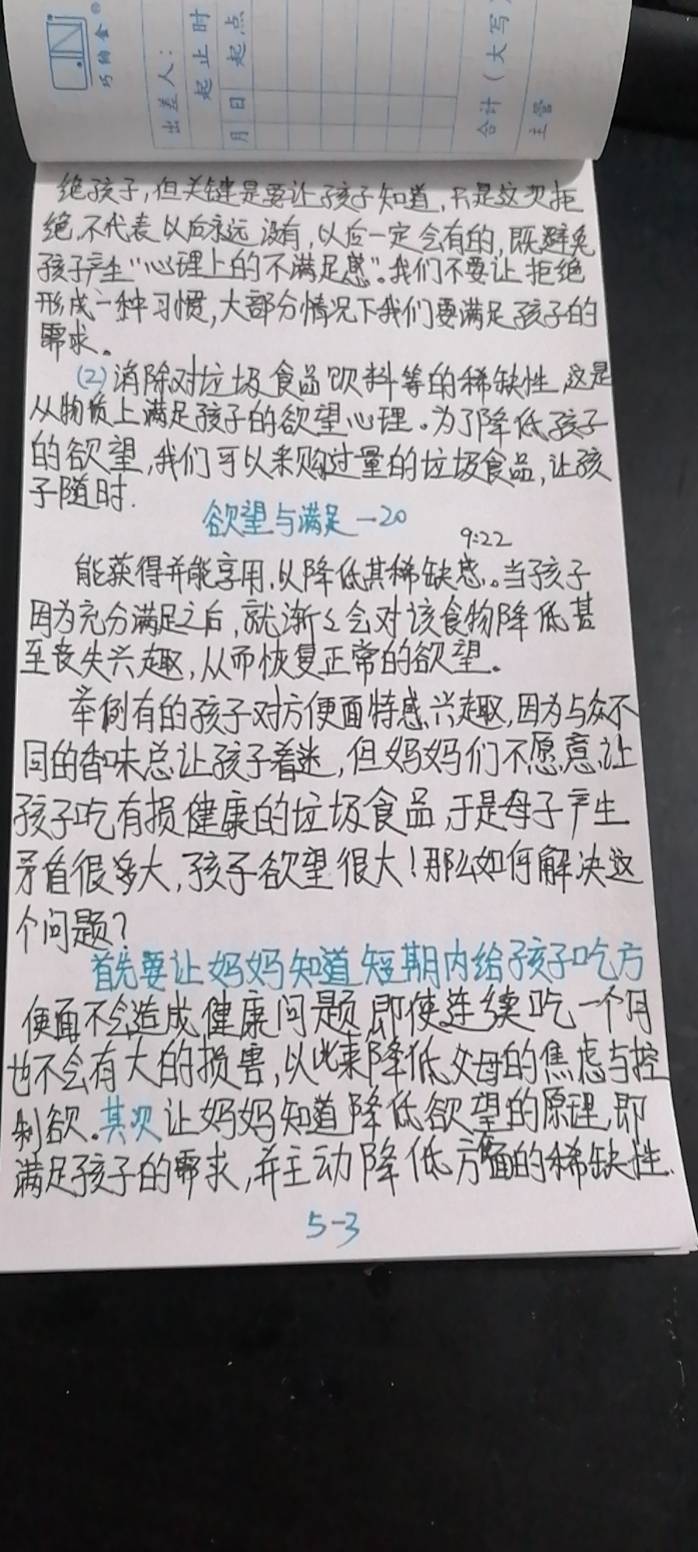 巧的舍
出差人：
起止时
月 日 起点
合计（大写）
主管
绝孩子，但关键是要让孩子知道，只是这次拒
绝，不代表以后永远没有，以后一定会有的，既避免
孩子产生“心理上的不满足感”。我们不要让拒绝
形成一种习惯，大部分情况下我们要满足孩子的
需求。
(2)消除对垃圾食品饮料等的稀缺性，这是
从物质上满足孩子的欲望心理。为了降低孩子
的欲望，我们可以来购过量的垃圾食品，让孩
子随时.
欲望与满足一20
9:22
能获得并能享用，以降低其稀缺感。当孩子
因为充分满足之后，就渐々会对该食物降低甚
至丧失兴趣，从而恢复正常的欲望。
举例有的孩子对方便面特感兴趣，因为与众不
同的香味总让孩子着迷，但妈妈们不愿意让
孩子吃有损健康的垃圾食品，于是母子产生
矛盾很多大，孩子欲望很大！那么如何解决这
个问题？
首先要让妈妈知道短期内给孩子吃方
便面不会造成健康问题，即使连续吃一个月
也不会有大的损害，以此来降低父母的焦虑与控
制欲。其次让妈妈知道降低欲望的原理，即
满足孩子的需求，并主动降低方便面的稀缺性.
5-3